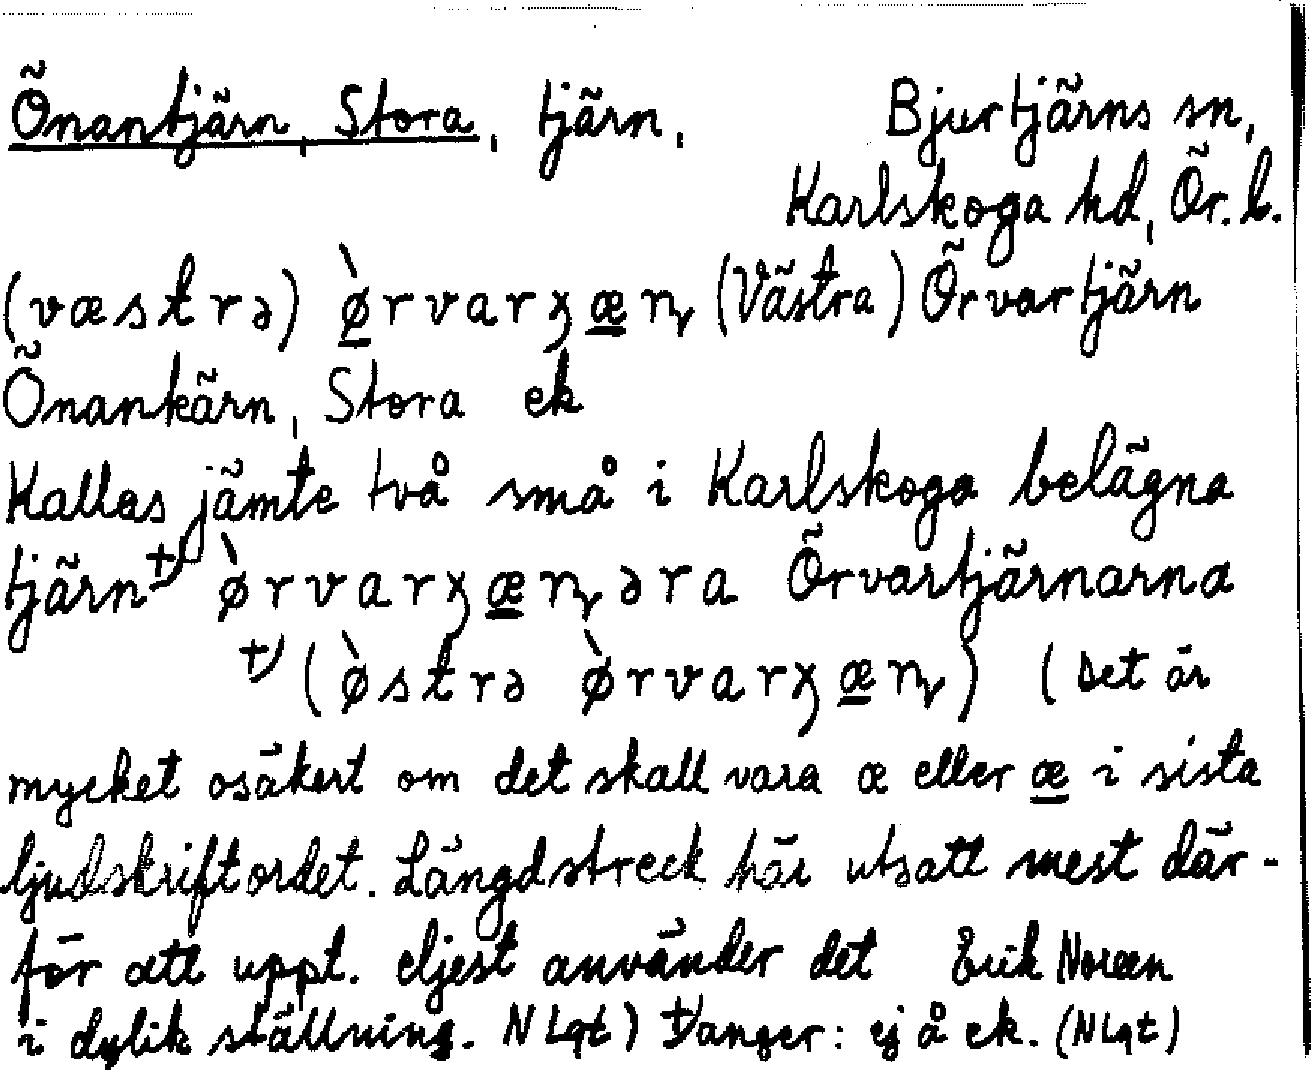 Önantjärn, Stora, tjärn, Bjurtjärns sn,
Karlskoga hd, Ör. l.
(væstrə) ø̲̀rvarʒæ̲ɳ (Västra) Örvartjärn
Önankärn, Stora ek
Kallas jämte två små i Karlskoga belägna
tjärn +) ø̀rvarʒæ̲ɳəra Örvartjärnarna
+) (ø̀strə ø̀rvarʒæ̲ɳ) (Det är
mycket osäkert om det skall vara æ eller æ̲ i sista
ljudskriftordet. Längdstreck här utsatt mest där-
för att uppt. eljest använder det Erik Noreen
i dylik ställning. NLqt) +) anger: ej å ek. (NLqt)